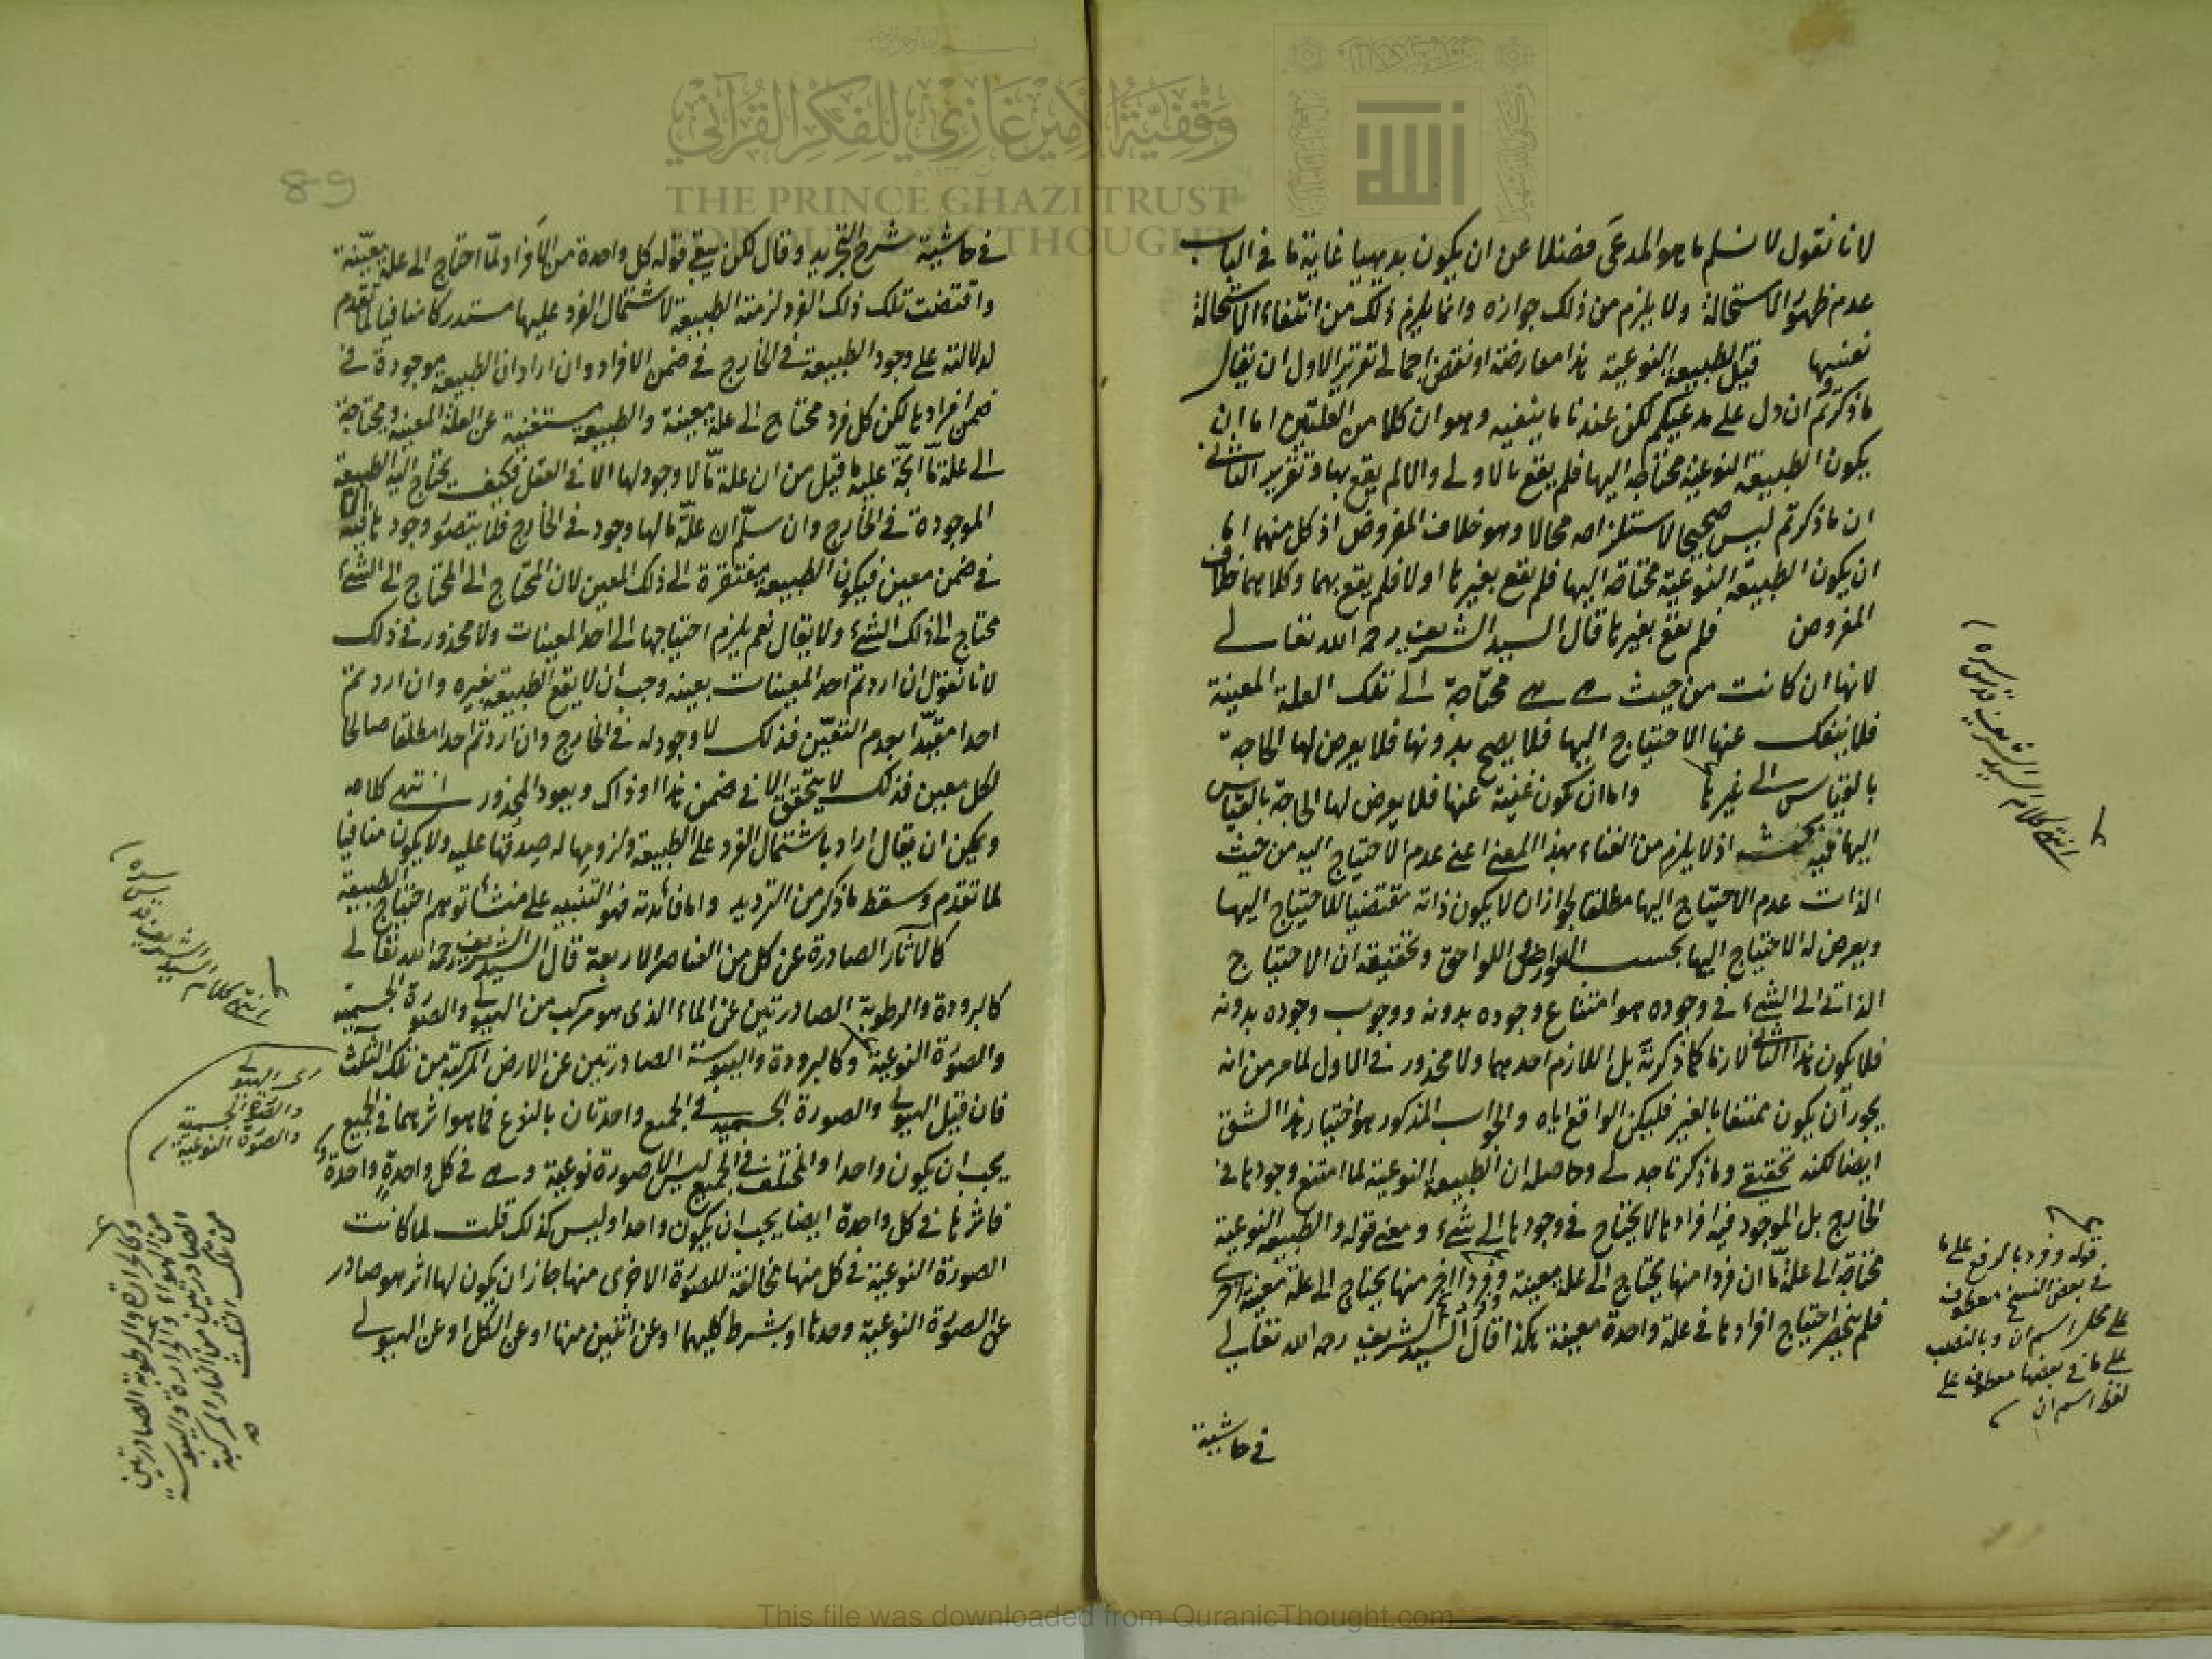 لانا نقول لا نسلم ما هو المدعى فضلا عن ان يكون بديهيا غاية ما في الباب
عدم ظهور الاستحالة ولا يلزم من ذلك جوازه وانما يلزم ذلك من انتفاء الاستحالة
نفسها قيل الطبيعة النوعية هذا معارضة او نقض اجمالي تقرير الاول ان يقال
ما ذكرتم وان دل على مدعيكم لكن عندنا ما ينفيه وهو ان كلا من العلتين اما ان
يكون الطبيعة النوعية محتاجة اليها فلم يقع بالاولى والا لم يقع بها وتقرير الثاني
ان ما ذكرتم ليس صحيحا لاستلزامه محالا وهو خلاف المفروض اذ كل منهما اما
ان يكون الطبيعة النوعية محتاجة اليها فلم يقع بغيرها او لا فلم يقع بهما وكلاهما خلاف
المفروض فلم يقع بغيرها قال السيد الشريف رحمه الله تعالى
لانها ان كانت من حيث هي هي محتاجة الى تلك العلة المعينة
فلا ينفك عنها الاحتياج اليها فلا يصح بدونها فلا يعرض لها الحاجة
بالقياس الى غيرها واما ان تكون غنية عنها فلا يعرض لها الحاجة بالقياس
اليها فيه بحث اذ لا يلزم من الغناء بهذا المعنى اعني عدم الاحتياج اليه من حيث
الذات عدم الاحتياج اليها مطلقا لجواز ان لا يكون ذاته مقتضيا للاحتياج اليها
ويعرض له الاحتياج اليها بحسب العوارض اللواحق وتحقيقه ان الاحتياج
الذاتي الى الشيء في وجوده هو امتناع وجوده بدونه ووجوب وجوده بدونه
فلا يكون هذا الثاني لازما كما ذكرته بل اللازم احدهما ولا محذور في الاول لما مر من انه
يجوز ان يكون ممتنعا بالغير فليكن الواقع اياه والجواب المذكور هو اختيار هذا الشق
ايضا لكنه تحقيقي وما ذكرنا جدلي وحاصله ان الطبيعة النوعية لما امتنع وجودها في
الخارج بل الموجود فيه افرادها لا يحتاج في وجودها الى شيء ومعنى قوله والطبيعة النوعية
محتاجة الى علة ما ان فردا منها يحتاج الى علة معينة وفردا اخر منها يحتاج الى علة معينة اخرى
فلم ينحصر احتياج افرادها في علة واحدة معينة هكذا قال السيد الشريف رحمه الله تعالى
في حاشية
انتهى كلام السيد الشريف قدس سره
قوله وفرد بالرفع على ما
في بعض النسخ معطوف
على محل اسم ان وبالنصب
على ما في بعضها معطوف على
لفظ اسم ان
89
في حاشية شرح التجريد وقال لكن يبقى قوله كل واحدة من الافراد لما احتاج الى علة معينة
واقتضت تلك ذلك الفرد لزمته الطبيعة لاشتمال الفرد عليها مستدركا منافيا لما تقدم
لدلالته على وجود الطبيعة في الخارج في ضمن الافراد وان اراد ان الطبيعة موجودة في
ضمن افرادها لكن كل فرد محتاج الى علة معينة والطبيعة مستغنية عن العلة المعينة ومحتاجة
الى علة ما اتجه عليه ما قيل من ان علة ما لا وجود لها الا في العقل فكيف يحتاج اليه الطبيعة
الموجودة في الخارج وان سلم ان علة ما لها وجود في الخارج فلا يتصور وجودها فيه الا
في ضمن معين فيكون الطبيعة مفتقرة الى ذلك المعين لان المحتاج الى المحتاج الى الشيء
محتاج الى ذلك الشيء ولا يقال نعم يلزم احتياجها الى احد المعينات ولا محذور في ذلك
لانا نقول ان اردتم احد المعينات بعينه وجب ان لا يقع الطبيعة بغيره وان اردتم
احدا مقيدا بعدم التعين فذلك لا وجود له في الخارج وان اردتم احدا مطلقا صالحا
لكل معين فذلك لا يتحقق الا في ضمن هذا او ذاك ويعود المحذور انتهى كلامه
ويمكن ان يقال اراد باشتمال الفرد على الطبيعة ولزومها له صدقها عليه ولا يكون منافيا
لما تقدم وسقط ما ذكر من الترديد واما فائدته فهو التنبيه على منشأ توهم احتياج الطبيعة
كالآثار الصادرة عن كل من العناصر الاربعة قال السيد الشريف رحمه الله تعالى
كالبرودة والرطوبة الصادرتين عن الماء الذي هو مركب من الهيولى والصورة الجسمية
والصورة النوعية وكالبرودة واليبوسة الصادرتين عن الارض المركبة من تلك الثلث
فان قيل الهيولى والصورة الجسمية في الجميع واحدتان بالنوع فما هو اثرهما في الجميع
يجب ان يكون واحدا والمختلف في الجميع ليس الا صورة نوعية وهي في كل واحدة واحدة
فاثرها في كل واحدة ايضا يجب ان يكون واحدا وليس كذلك قلت لما كانت
الصورة النوعية في كل منها مخالفة للصورة الاخرى منها جاز ان يكون لها اثر هو صادر
عن الصورة النوعية وحدها او بشرط كليهما او عن اثنين منها او عن الكل او عن الهيولى
انتهى كلام السيد الشريف قدس سره
اى الهيولى
والصورة الجسمية
والصورة النوعية
وكالحرارة والرطوبة الصادرتين
من الهواء والحرارة واليبوسة
الصادرتين من النار المركبة
من تلك الثلث
وقفية الأمير غازي للفكر القرآني
THE PRINCE GHAZI TRUST
FOR QUR'ANIC THOUGHT
This file was downloaded from QuranicThought.com